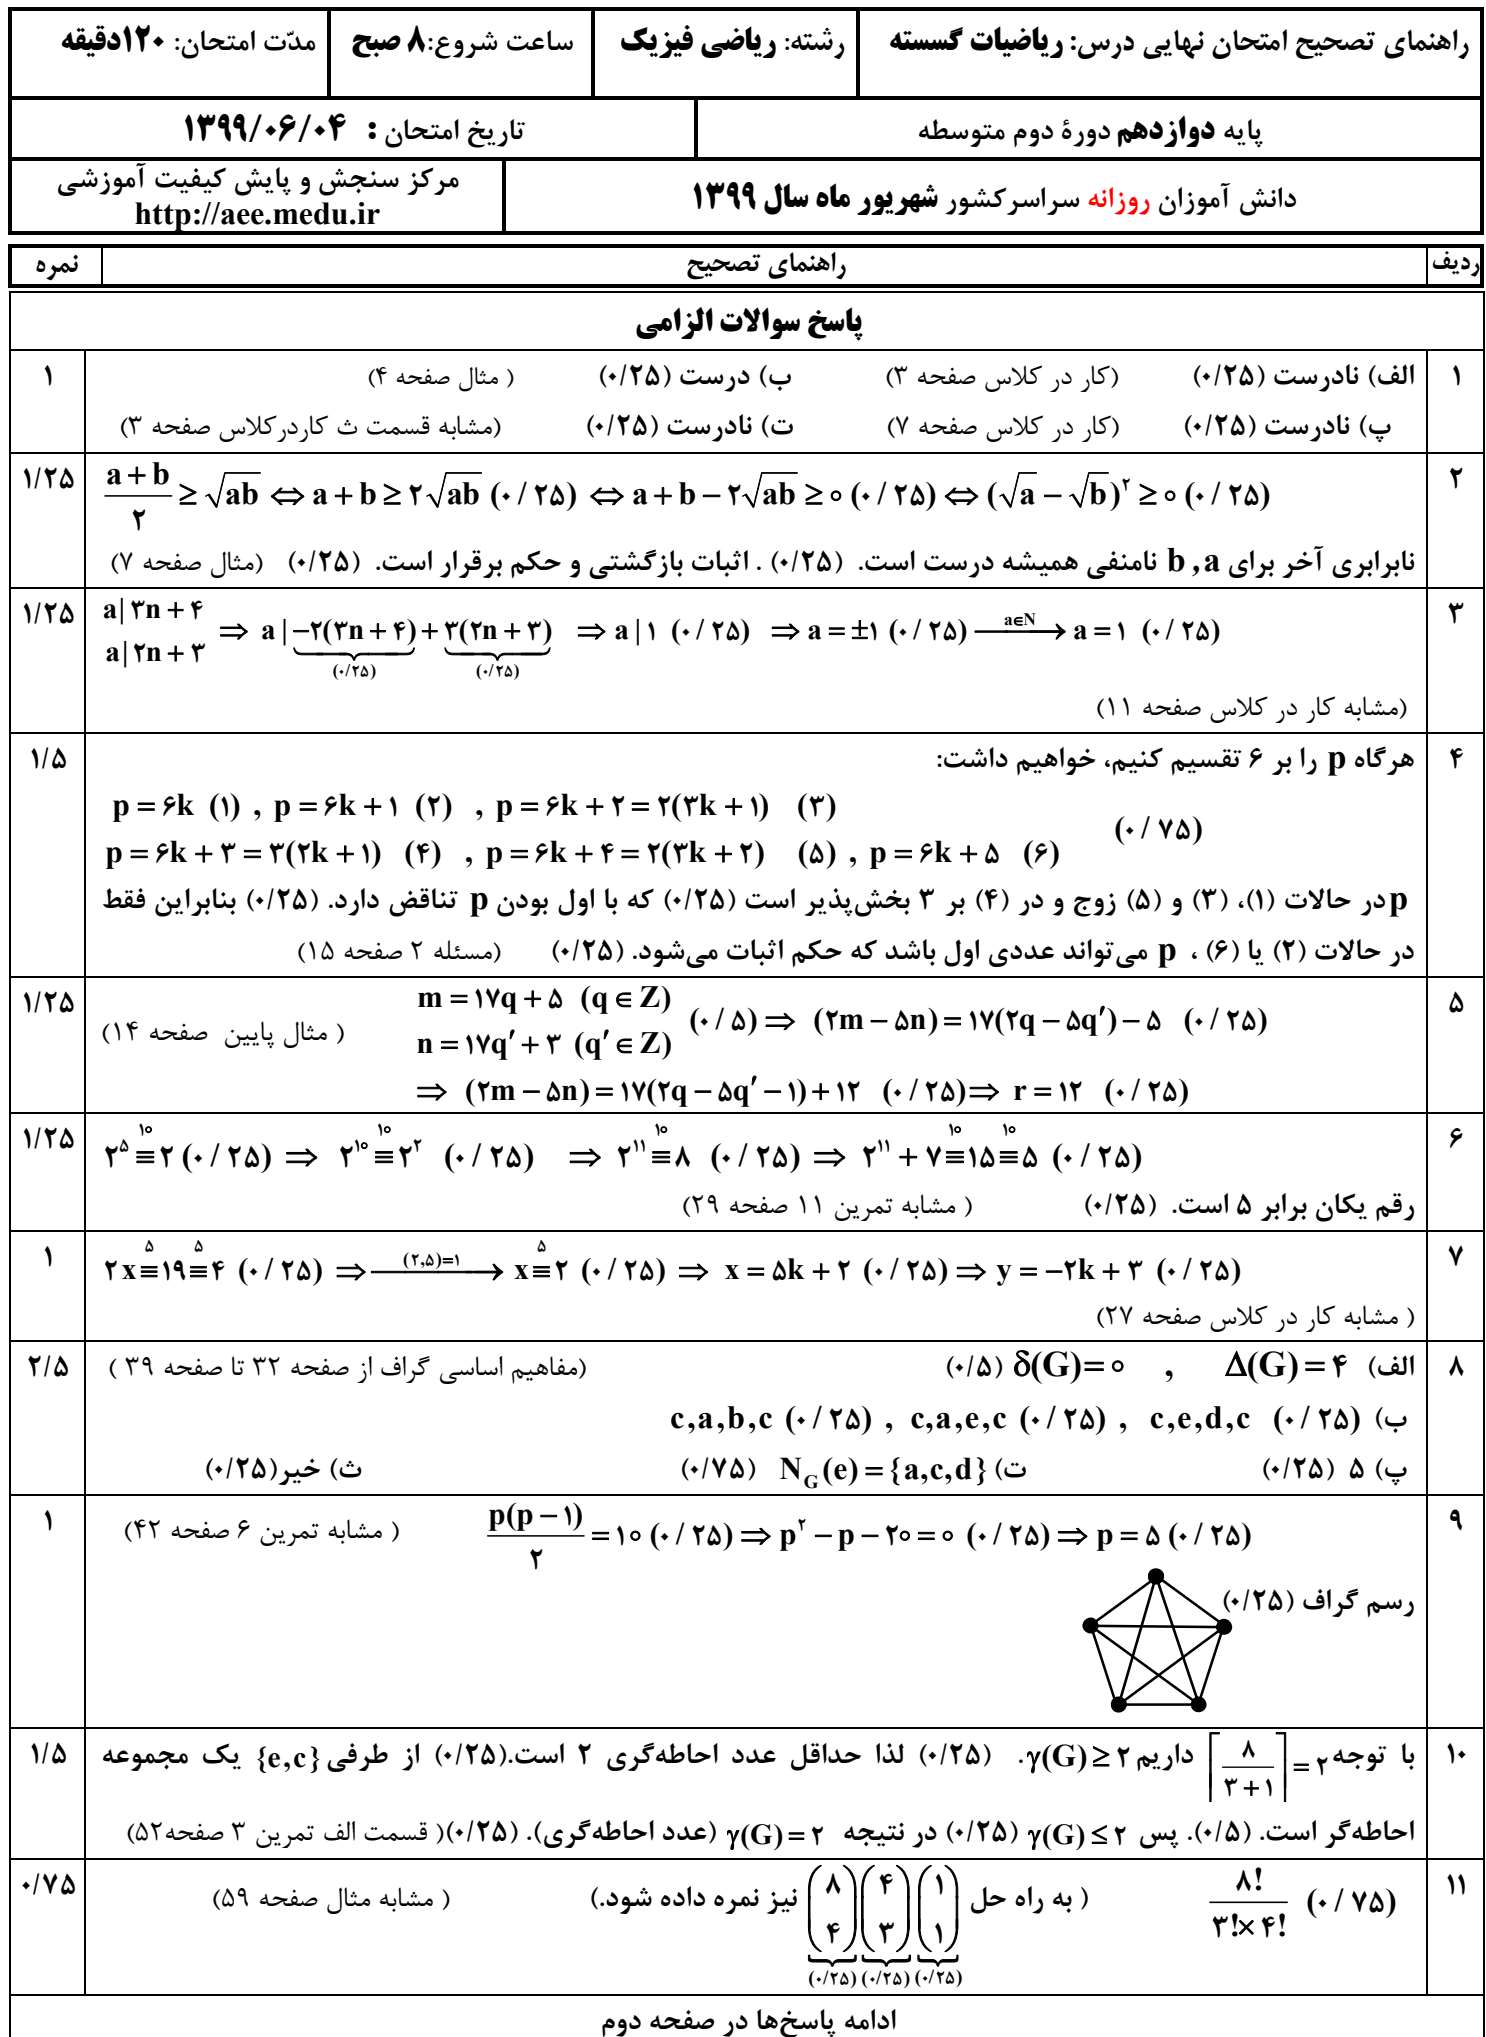 راهنمای تصحیح امتحان نهایی درس: ریاضیات گسسته | رشته: ریاضی فیزیک | ساعت شروع:۸ صبح | مدّت امتحان: ۱۲۰دقیقه
پایه دوازدهم دورهٔ دوم متوسطه | تاریخ امتحان : ۱۳۹۹/۰۶/۰۴
دانش آموزان روزانه سراسرکشور شهریور ماه سال ۱۳۹۹ | مرکز سنجش و پایش کیفیت آموزشی
http://aee.medu.ir
ردیف | راهنمای تصحیح | نمره
پاسخ سوالات الزامی
۱ | الف) نادرست (۰/۲۵) (کار در کلاس صفحه ۳) ب) درست (۰/۲۵) ( مثال صفحه ۴) | ۱
پ) نادرست (۰/۲۵) (کار در کلاس صفحه ۷) ت) نادرست (۰/۲۵) (مشابه قسمت ث کاردرکلاس صفحه ۳)
۲ | (a+b)/۲ ≥ √ab ⇔ a+b ≥ ۲√ab (۰/۲۵) ⇔ a+b−۲√ab ≥ ۰ (۰/۲۵) ⇔ (√a − √b)^۲ ≥ ۰ (۰/۲۵) | ۱/۲۵
نابرابری آخر برای b , a نامنفی همیشه درست است. (۰/۲۵) . اثبات بازگشتی و حکم برقرار است. (۰/۲۵) (مثال صفحه ۷)
۳ | a|۳n+۴ , a|۲n+۳ ⇒ a | −۲(۳n+۴) (۰/۲۵) + ۳(۲n+۳) (۰/۲۵) ⇒ a|۱ (۰/۲۵) ⇒ a = ±۱ (۰/۲۵) —a∈N→ a = ۱ (۰/۲۵) | ۱/۲۵
(مشابه کار در کلاس صفحه ۱۱)
۴ | هرگاه p را بر ۶ تقسیم کنیم، خواهیم داشت: | ۱/۵
p = ۶k (۱) , p = ۶k+۱ (۲) , p = ۶k+۲ = ۲(۳k+۱) (۳)
(۰/۷۵)
p = ۶k+۳ = ۳(۲k+۱) (۴) , p = ۶k+۴ = ۲(۳k+۲) (۵) , p = ۶k+۵ (۶)
pدر حالات (۱)، (۳) و (۵) زوج و در (۴) بر ۳ بخش‌پذیر است (۰/۲۵) که با اول بودن p تناقض دارد. (۰/۲۵) بنابراین فقط
در حالات (۲) یا (۶) ، p می‌تواند عددی اول باشد که حکم اثبات می‌شود. (۰/۲۵) (مسئله ۲ صفحه ۱۵)
۵ | m = ۱۷q+۵ (q∈Z) , n = ۱۷q′+۳ (q′∈Z) (۰/۵) ⇒ (۲m−۵n) = ۱۷(۲q−۵q′)−۵ (۰/۲۵) ( مثال پایین صفحه ۱۴) | ۱/۲۵
⇒ (۲m−۵n) = ۱۷(۲q−۵q′−۱)+۱۲ (۰/۲۵) ⇒ r = ۱۲ (۰/۲۵)
۶ | ۲^۵ ≡(۱۰) ۲ (۰/۲۵) ⇒ ۲^۱۰ ≡(۱۰) ۲^۲ (۰/۲۵) ⇒ ۲^۱۱ ≡(۱۰) ۸ (۰/۲۵) ⇒ ۲^۱۱ + ۷ ≡(۱۰) ۱۵ ≡(۱۰) ۵ (۰/۲۵) | ۱/۲۵
رقم یکان برابر ۵ است. (۰/۲۵) ( مشابه تمرین ۱۱ صفحه ۲۹)
۷ | ۲x ≡(۵) ۱۹ ≡(۵) ۴ (۰/۲۵) ⇒ —(۲,۵)=۱→ x ≡(۵) ۲ (۰/۲۵) ⇒ x = ۵k+۲ (۰/۲۵) ⇒ y = −۲k+۳ (۰/۲۵) | ۱
( مشابه کار در کلاس صفحه ۲۷)
۸ | الف) Δ(G) = ۴ , δ(G) = ۰ (۰/۵) (مفاهیم اساسی گراف از صفحه ۳۲ تا صفحه ۳۹ ) | ۲/۵
ب) c,a,b,c (۰/۲۵) , c,a,e,c (۰/۲۵) , c,e,d,c (۰/۲۵)
پ) ۵ (۰/۲۵) ت) N_G(e) = {a,c,d} (۰/۷۵) ث) خیر(۰/۲۵)
۹ | p(p−۱)/۲ = ۱۰ (۰/۲۵) ⇒ p^۲ − p − ۲۰ = ۰ (۰/۲۵) ⇒ p = ۵ (۰/۲۵) ( مشابه تمرین ۶ صفحه ۴۲) | ۱
رسم گراف (۰/۲۵)
۱۰ | با توجه ⌈۸/(۳+۱)⌉ = ۲ داریم γ(G) ≥ ۲. (۰/۲۵) لذا حداقل عدد احاطه‌گری ۲ است.(۰/۲۵) از طرفی {e,c} یک مجموعه | ۱/۵
احاطه‌گر است. (۰/۵). پس γ(G) ≤ ۲ (۰/۲۵) در نتیجه γ(G) = ۲ (عدد احاطه‌گری). (۰/۲۵)( قسمت الف تمرین ۳ صفحه۵۲)
۱۱ | ۸!/(۳!×۴!) (۰/۷۵) ( به راه حل (۸ ۴) (۰/۲۵) (۴ ۳) (۰/۲۵) (۱ ۱) (۰/۲۵) نیز نمره داده شود.) ( مشابه مثال صفحه ۵۹) | ۰/۷۵
ادامه پاسخ‌ها در صفحه دوم